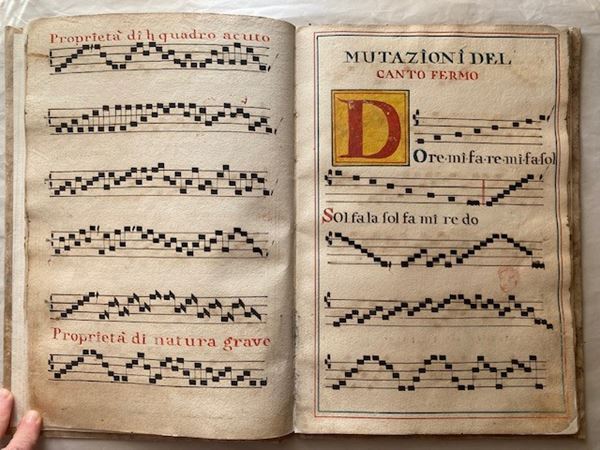 Proprietà di ♮ quadro acuto
Proprietà di natura grave
MUTAZIONI DEL
CANTO FERMO
D
Ore·mi·fa·re·mi·fa·ſol
Sol fa la ſol fa mi re do